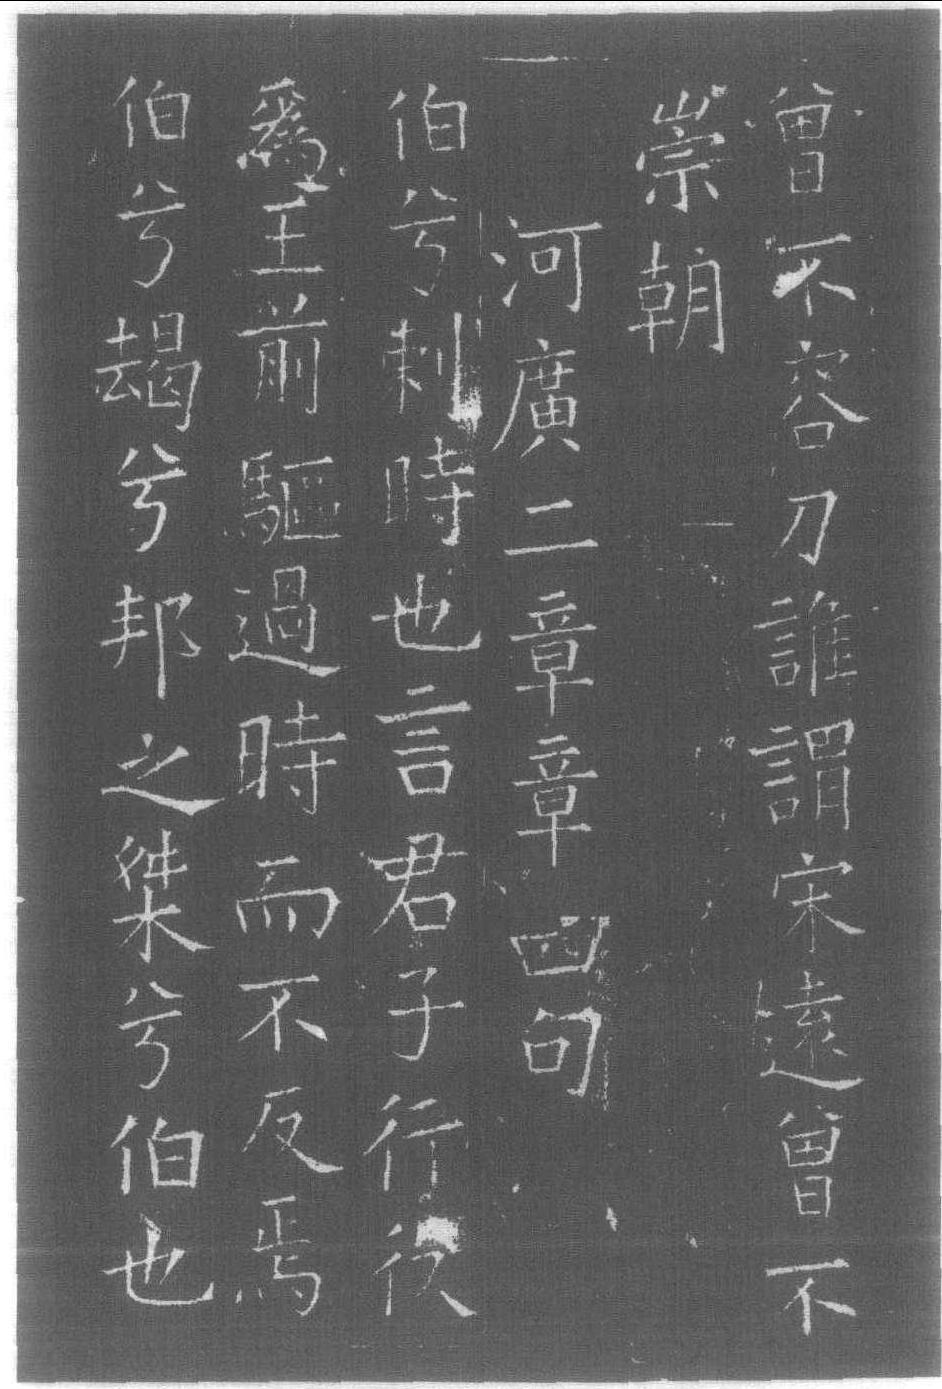 曾不容刀誰謂宋遠曾不
崇朝
河廣二章章四句
伯兮刺時也言君子行役
爲王前驅過時而不反焉
伯兮朅兮邦之桀兮伯也